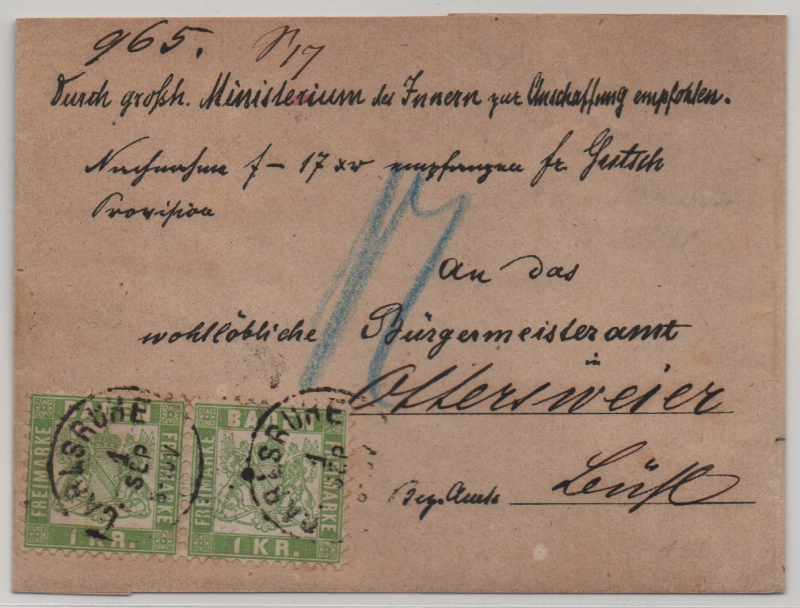 965. 17
Durch großh. Ministerium des Innern zur Anschaffung empfohlen.
Nachnahme f – 17 xr empfangen fr. Gutsch
Provision
17
An das
wohllöbliche Bürgermeisteramt
in
Ottersweier
Bez. Amts Bühl
FREIMARKE BADEN FREIMARKE
1 KR. 1 KR.
CARLSRUHE 1 SEP
CARLSRUHE 1 SEP